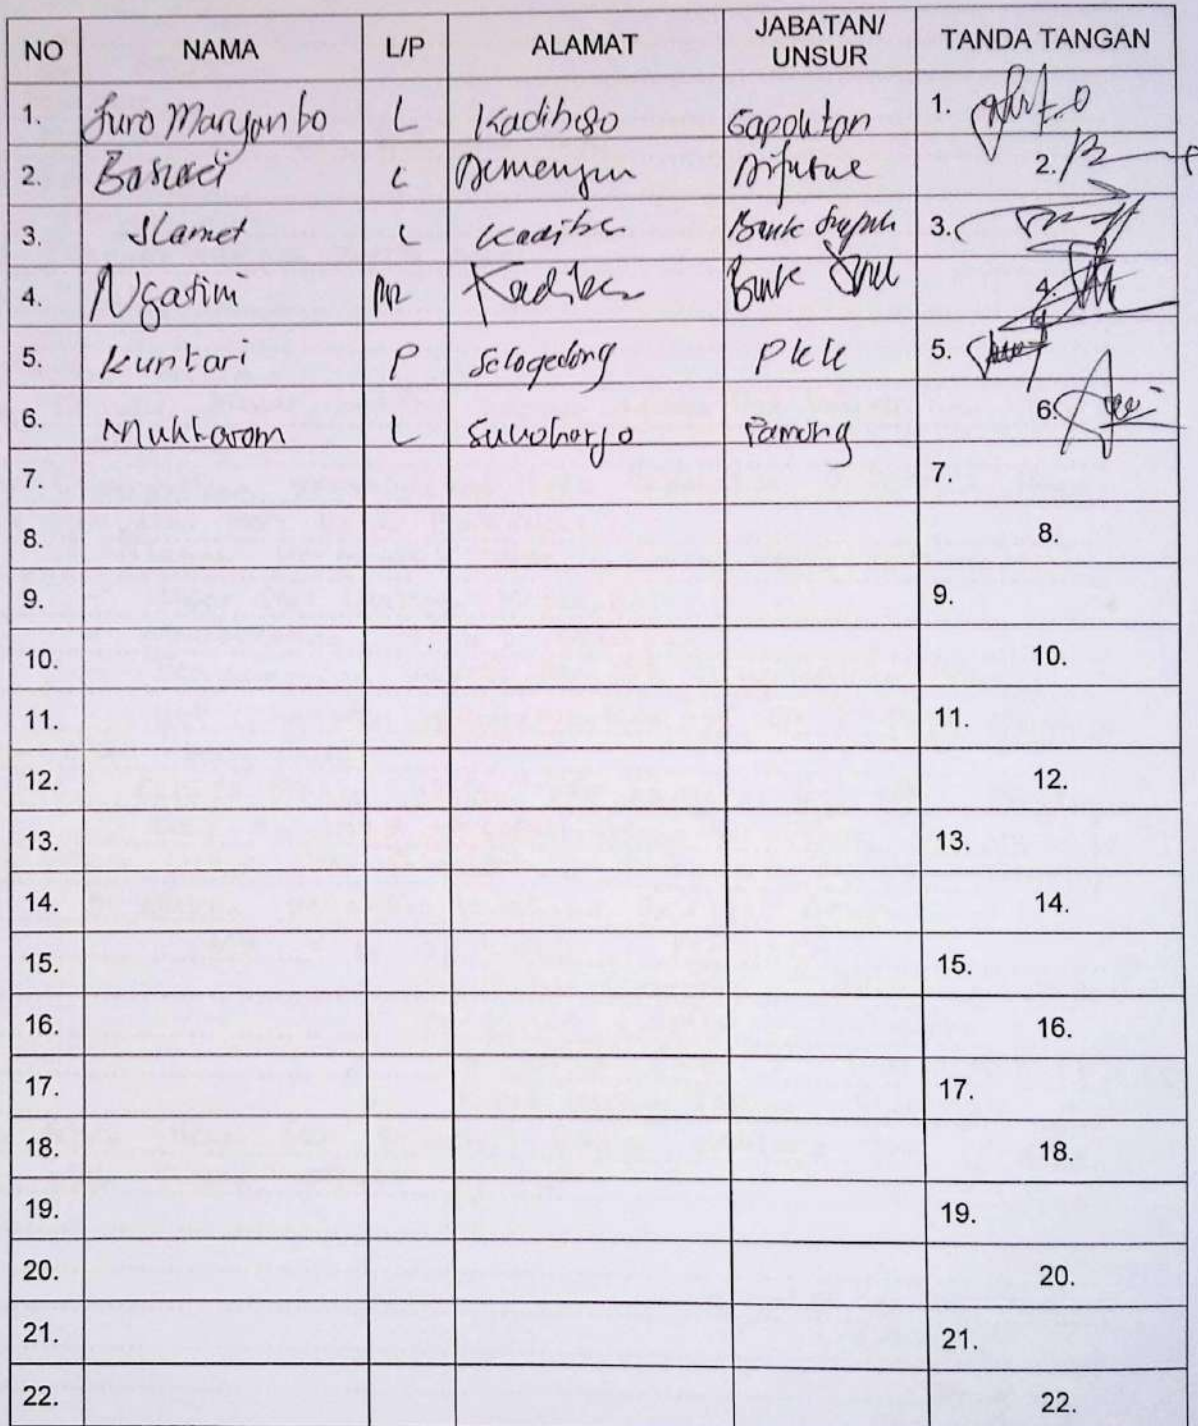 NO NAMA L/P ALAMAT JABATAN/ UNSUR TANDA TANGAN
1. Suro Maryanto L Kadiboso Gapoktan 1.
2. L 2.
3. Slamet L 3.
4. Ngatini Bank 4.
5. Kuntari P Selogedong PKK 5.
6. Mukhtarom L Sukoharjo Pamong 6.
7. 7.
8. 8.
9. 9.
10. 10.
11. 11.
12. 12.
13. 13.
14. 14.
15. 15.
16. 16.
17. 17.
18. 18.
19. 19.
20. 20.
21. 21.
22. 22.